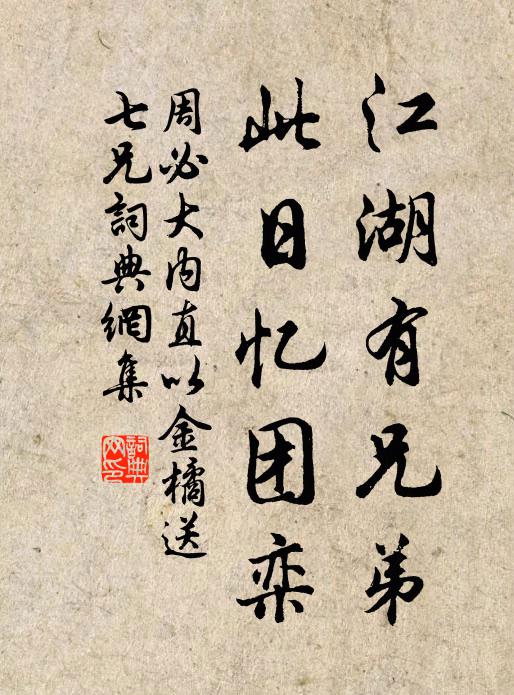 江湖有兄弟
此日忆团栾
周必大内直以金橘送
七兄詞典網集
詞典
网印